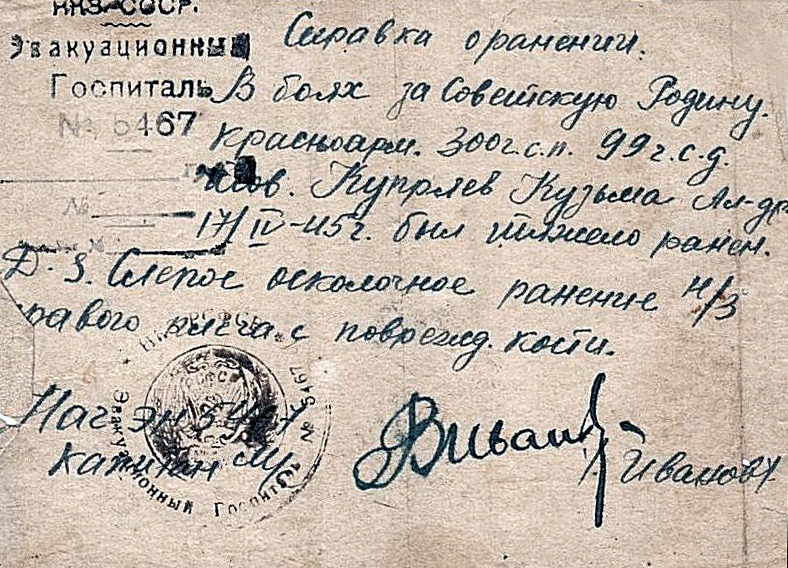 НКЗ-СССР.
Эвакуационный
Госпиталь
№ 5467
Справка о ранении.
В боях за Советскую Родину.
красноарм. 300 г.с.п. 99 г.с.д.
Купряев Кузьма Ал-др
17/IV-45г. был тяжело ранен.
Д.З. Слепое осколочное ранение н/з
правого плеча с поврежд. кости.
Нач
капитан
Иванов
№ 5467
Эвакуационный Госпиталь